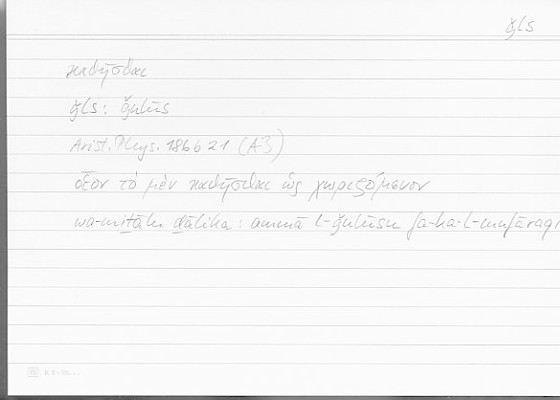 ǧls
καθῆσθαι
ǧls: ǧulūs
Arist. Phys. 186 b 21 (A3)
οἷον τὸ μὲν καθῆσθαι ὡς χωριζόμενον
wa-miṯālu ḏālika: ammā l-ǧulūsu fa-ka-l-mufāraqi